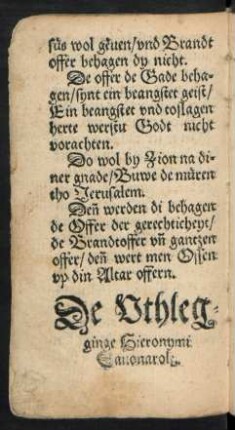 süs wol geuen/vnd Brandt
offer behagen dy nicht.
De offer de Gade beha-
gen/synt ein beangstet geist/
Ein beangstet vnd toslagen
herte werstu Godt nicht
vorachten.
Do wol by Zion na di-
ner gnade/Buwe de müren
tho Jerusalem.
Deñ werden di behagen
de Offer der gerechticheyt/
de Brandtoffer vñ gantzen
offer/deñ wert men Ossen
vp din Altar offern.
De Vthleg-
ginge Hieronymi
Sauonarole.